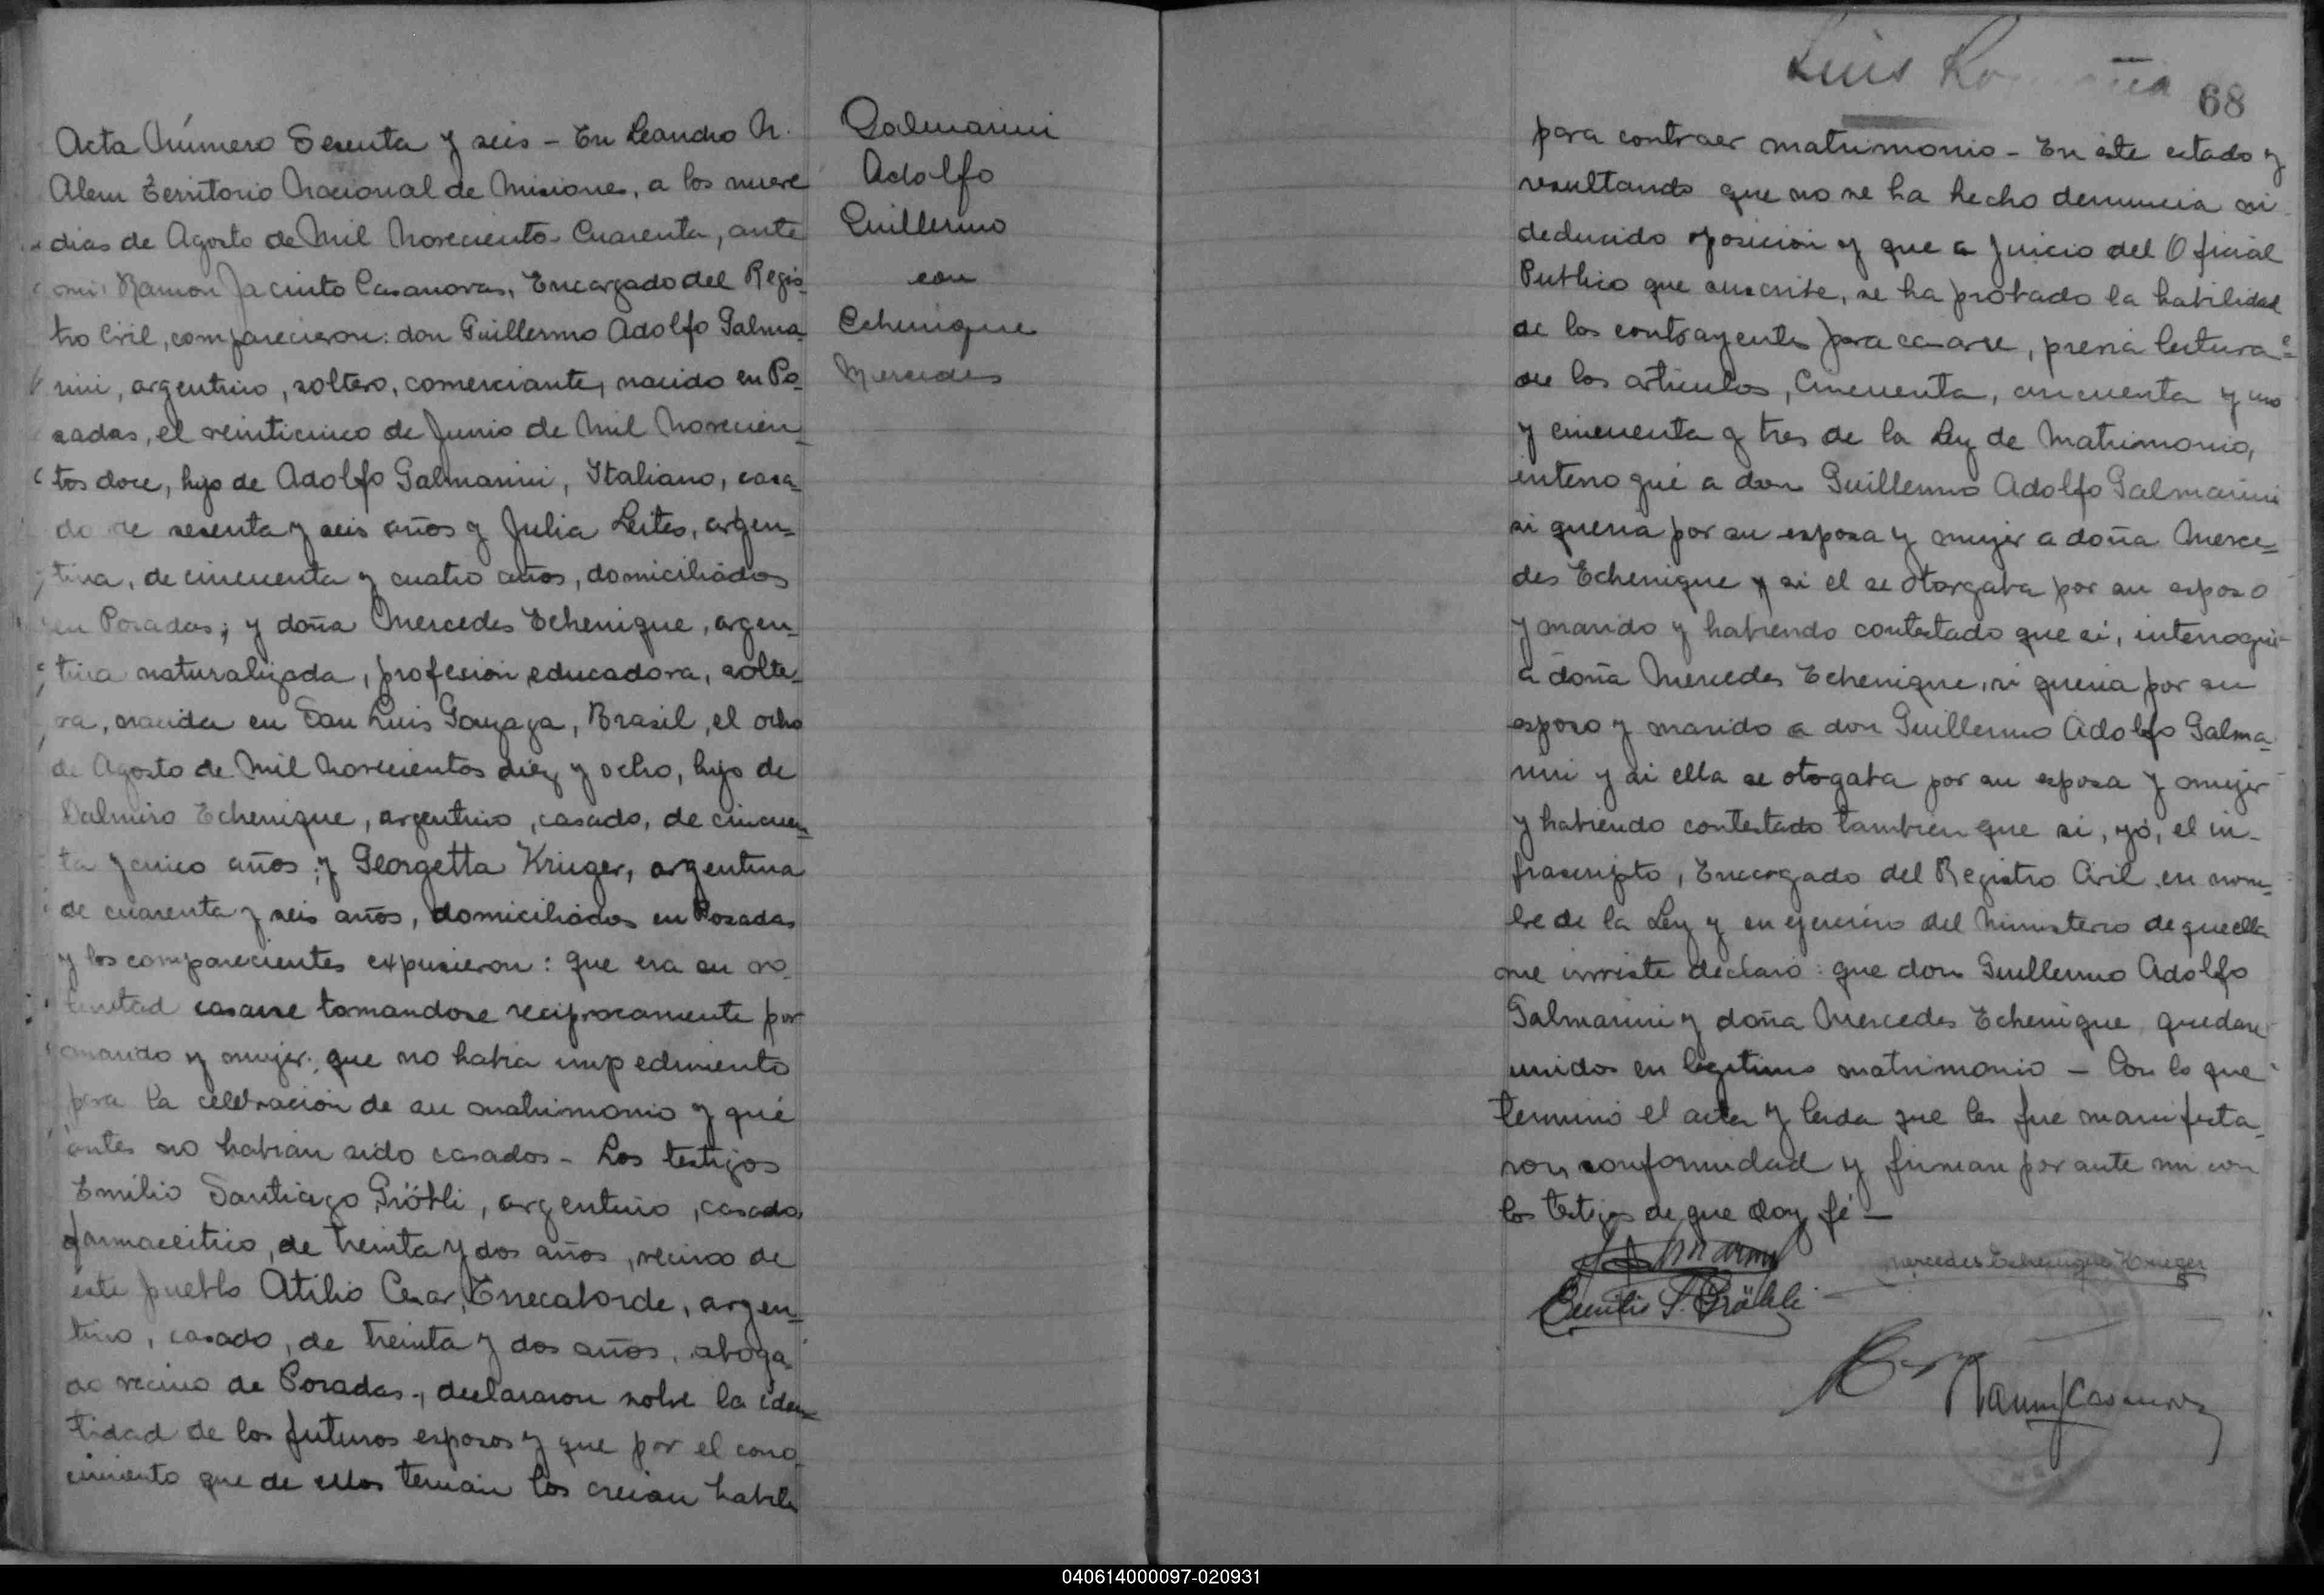 Acta Número Sesenta y seis - En Leandro N.
Alem Território Nacional de Misiones, a los nueve
dias de Agosto de Mil Novecientos Cuarenta, ante
mi Ramon Jacinto Casanovas, Encargado del Regis-
tro Civil, comparecieron: don Guillermo Adolfo Galma-
rini, argentino, soltero, comerciante, nacido en Po-
sadas, el veinticinco de Junio de Mil Novecien-
tos doce, hijo de Adolfo Galmarini, Italiano, casa-
do de sesenta y seis años y Julia Leites, argen-
tina, de cincuenta y cuatro años, domiciliados
en Posadas; y doña Mercedes Echenique, argen-
tina naturalizada, profesion educadora, solte-
ra, nacida en San Luis Gonzaga, Brasil, el ocho
de Agosto de Mil Novecientos diez y ocho, hija de
Dalmiro Echenique, argentino, casado, de cincuen-
ta y cinco años; y Georgetta Krieger, argentina
de cuarenta y seis años, domiciliados en Posadas
y los comparecientes expusieron: que era su vo-
luntad casarse tomandose reciprocamente por
marido y mujer; que no había impedimento
para la celebración de su matrimonio y qué
antes no habían sido casados - Los testigos
Emilio Santiago Gröhli, argentino, casado
farmaceitico, de treinta y dos años, vecino de
este pueblo Atilio Cesar, Errecaborde, argen-
tino, casado, de treinta y dos años, aboga-
do vecino de Posadas, declararon sobre la iden-
tidad de los futuros esposos y que por el cono-
cimiento que de ellos tenian los creian habiles
Galmarini
Adolfo
Guillermo
con
Echenique
Mercedes
Luis
68
para contraer matrimonio - En éste estado y
resultando que no se ha hecho denuncia ni
deducido oposición y que a juicio del Oficial
Publico que suscribe, se ha probado la habilidad
de los contrayentes para casarse, previa lectura
de los articulos, Cincuenta, cincuenta y uno
y cincuenta y tres de la Ley de Matrimonio,
interrogué a don Guillermo Adolfo Galmarini
si queria por su esposa y mujer a doña Merce-
des Echenique y si el se otorgaba por su esposo
y marido y habiendo contestado que si, interrogué
a doña Mercedes Echenique, si queria por su
esposo y marido a don Guillermo Adolfo Galma-
rini y si ella se otogaba por su esposa y mujer
y habiendo contestado tambien que si, yó, el in-
frascripto, Encargado del Registro Civil en nom-
bre de la Ley y en ejercicio del Ministerio de que ella
me inviste declaro: que don Guillermo Adolfo
Galmarini y doña Mercedes Echenique quedan
unidos en legitimo matrimonio - Con lo que
terminó el acta y leida que les fué manifesta-
ron conformidad y firman por ante mi con
los testigos de que doy fé -
Mercedes Echenique Krieger
Emilio S. Gröhli
Ramon J Casanovas
040614000097-020931